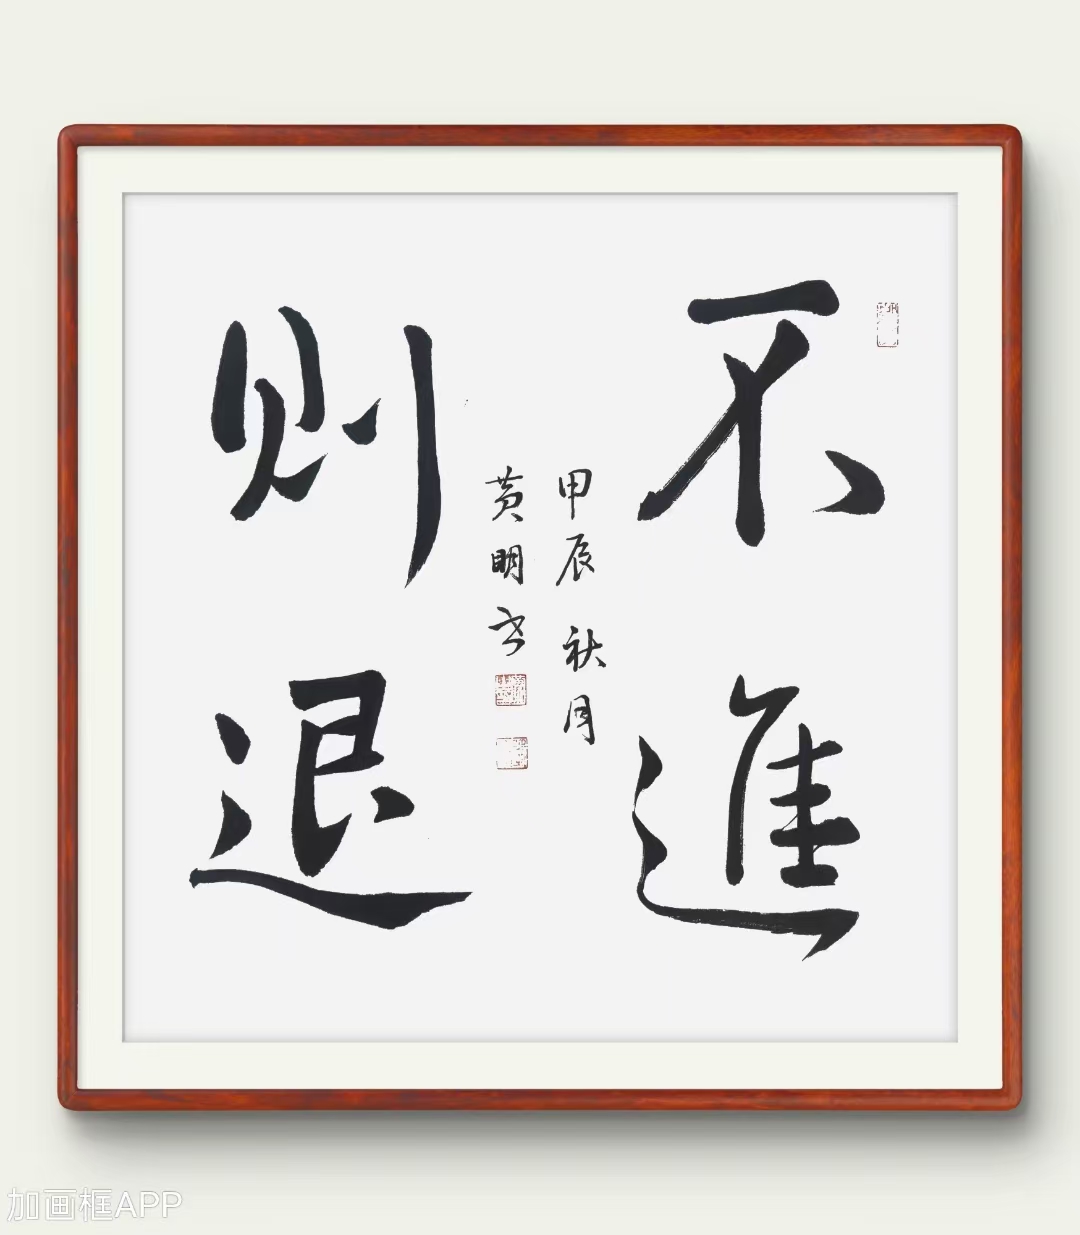 不進
則退
甲辰秋月
黄明书
加画框APP